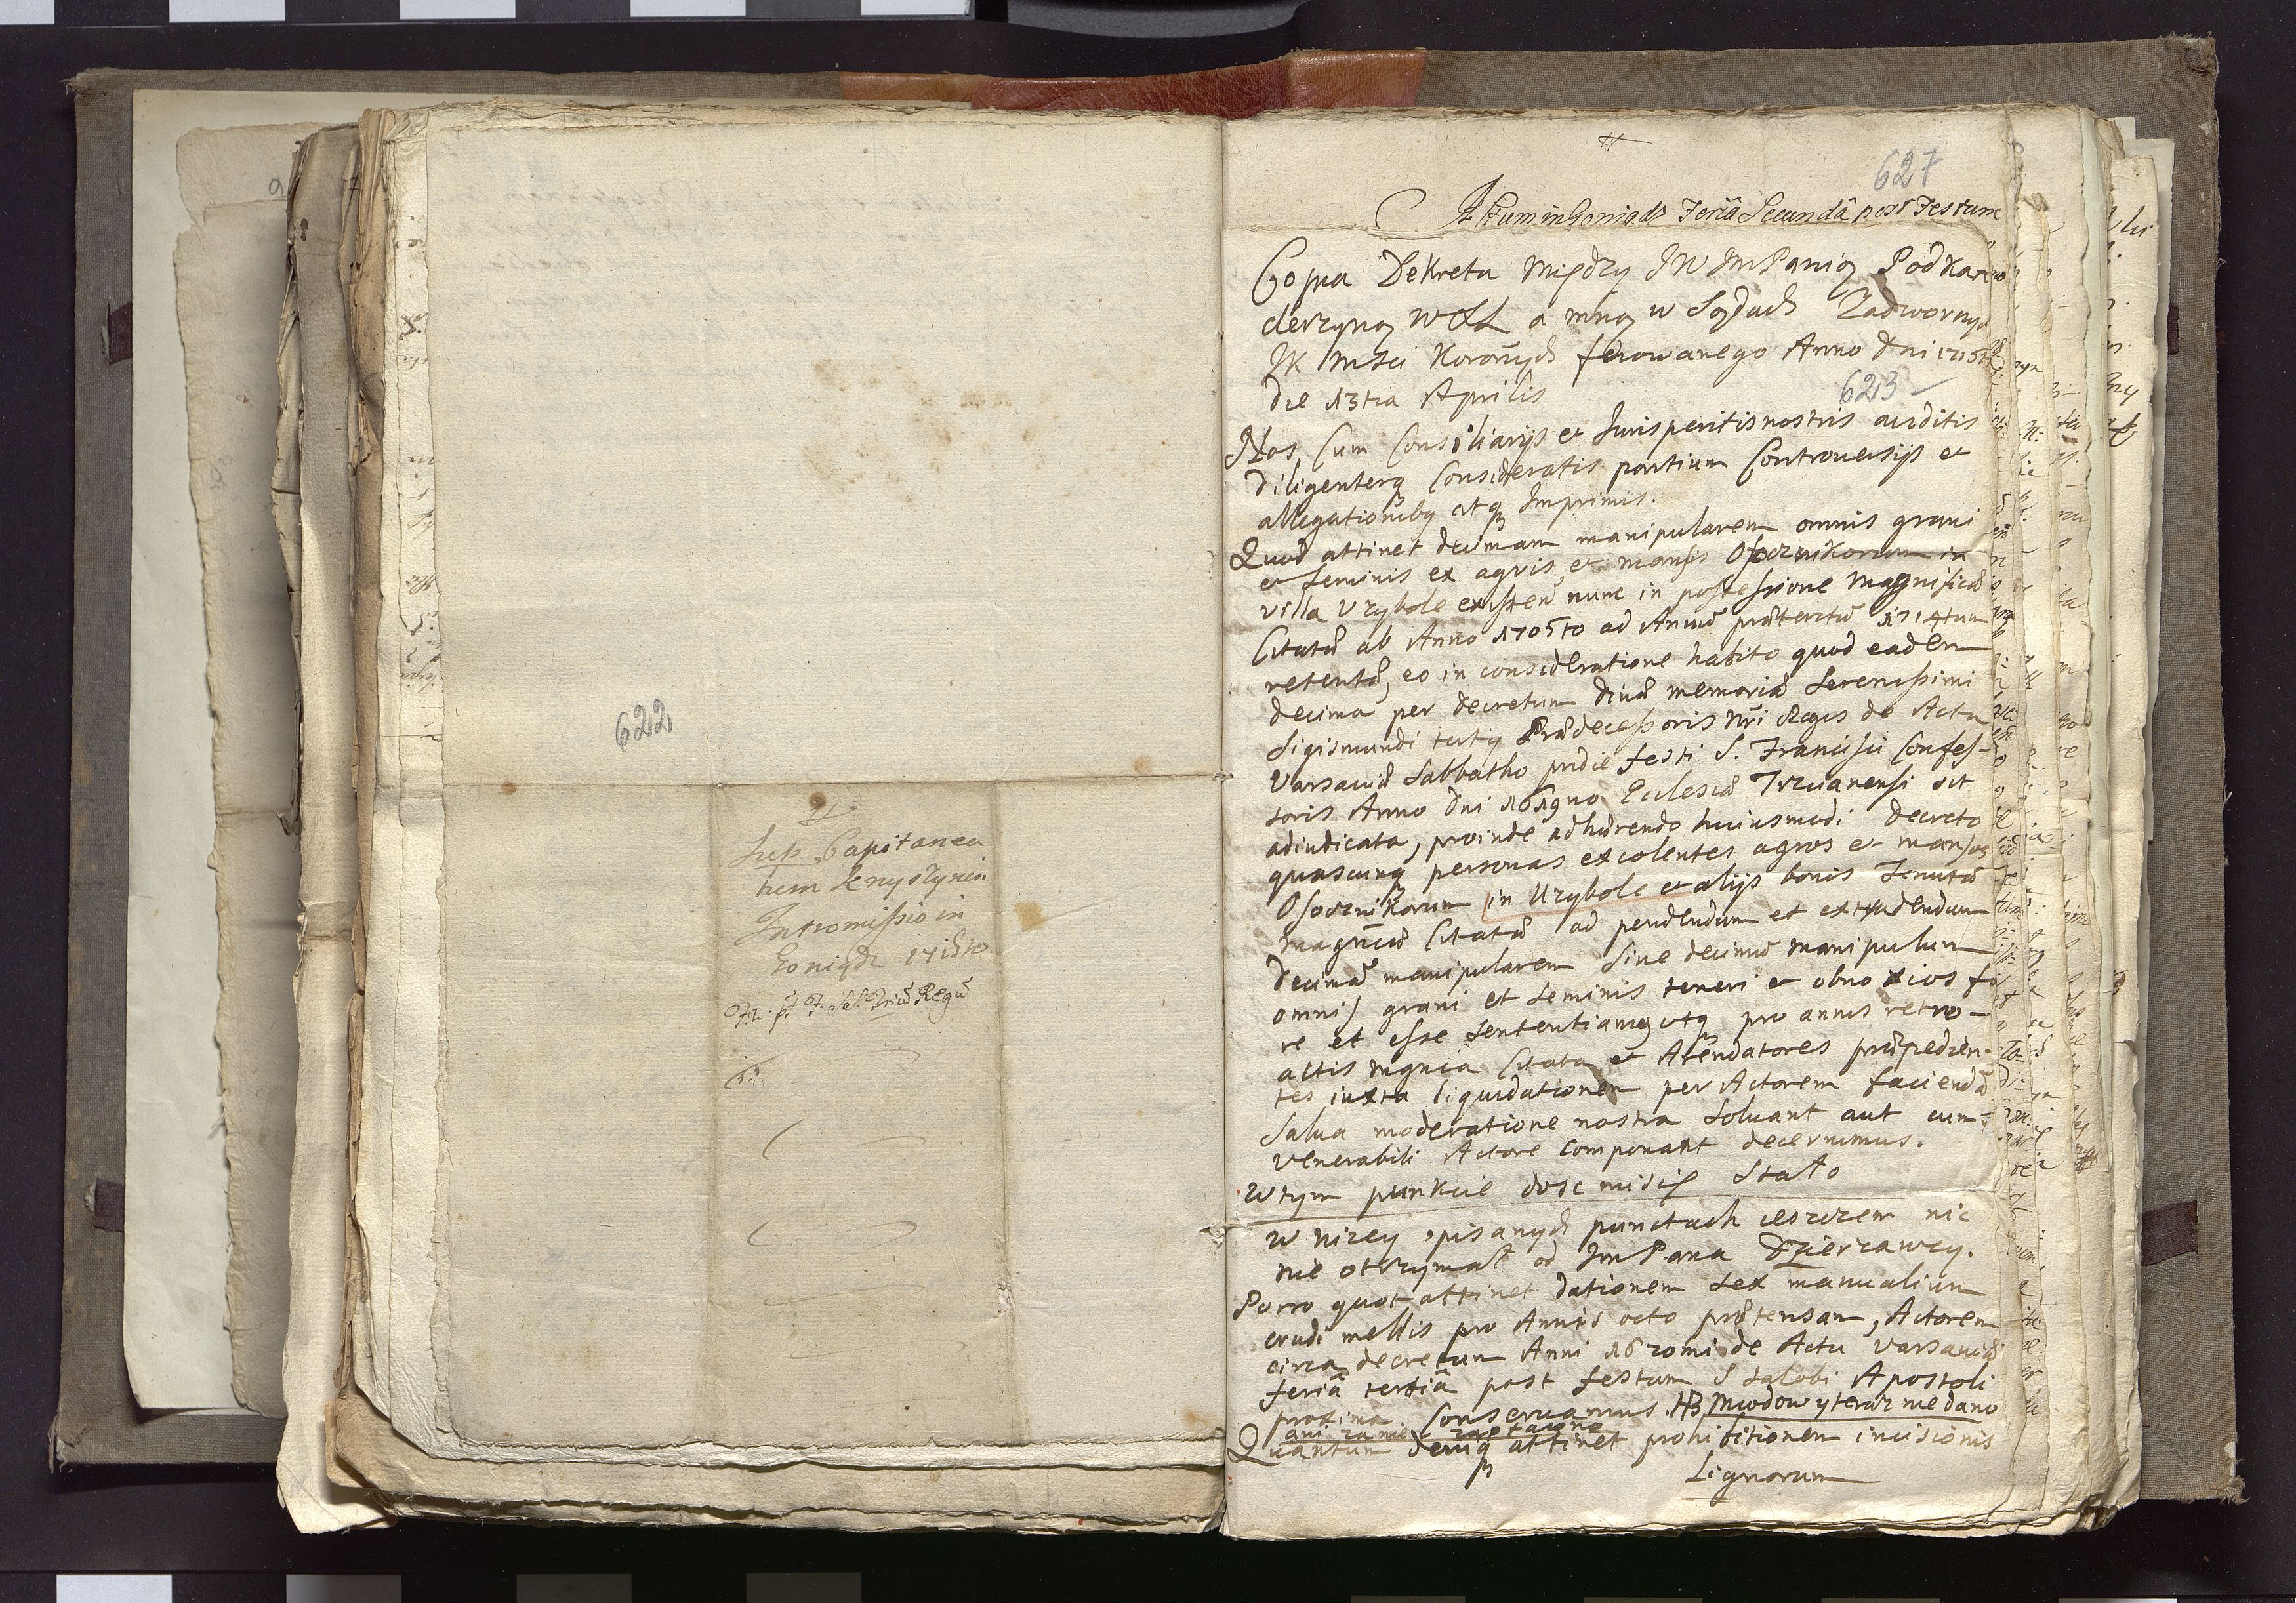 622
Sup Capitanea
tum Knyszynien
Intromissio in
Goniądz 1715to
627
Actum in Goniądz Feriâ Secundâ post Festum
Copia Dekretu między JW JmPanią Podkanc
lerzyną WXL a mną w Sądach Zadwornych
JK Msci Koronnych ferowanego Anno Dni 1715
die 13tia Aprilis
623
Nos Cum Consiliarijs et Jurisperitis nostris auditis
diligenterq Consideratis partium Controversijs et
allegationibq atq Imprimis.
Quod attinet decimam manipularem omnis grani
et seminis ex agris et mansis Osocznikorum in
villa Vzybole existen nunc in possessione Magnificæ
Citatæ ab Anno 1705to ad Annū præteritū 1714tum
retentæ, eo in consideratione habito quod eadem
decima per decretum divæ memoriæ Serenissimi
Sigismundi tertij Prædecessoris Nri Regis de Actu
Varsaviæ Sabbatho pridie festi S. Francisci Confes-
soris Anno Dni 1619no Ecclesiæ Trzcianensi sit
adiudicata, proinde adhærendo huiusmodi decreto
quascunq personas excolentes agros et mansos
Osocznikorum in Uzybole et alijs bonis Tenutæ
Magncæ Citatæ ad pendendum et extradendum
decimā manipularem sive decimū manipulum
omnis grani et seminis teneri et obnoxios fo
re et esse sententiamq utq pro annis retro-
actis Mgnca Citata et Arendatores præpedien-
tes iuxta liquidationem per Actorem faciendā
salva moderatione nostra solvant aut cum
Venerabili Actore componant decernimus.
W tym punkcie dosc mi się Stało
w nizey opisanych punctach ieszczem nic
nie otrzymał od JmPana Dzierzawcy.
Porro quot attinet dationem sex manualium
crudi mellis pro Annis octo prætensam, Actorem
circa decretum Anni 1620mi de Actu Varsaviæ
feriâ tertiâ post festum S Jakobi Apostoli
proxima Conservamus. NB Miodow y teraz nie dano
ani za nie zapłacono
Quantum deniq attinet prohibitionem incisionis
Lignorum